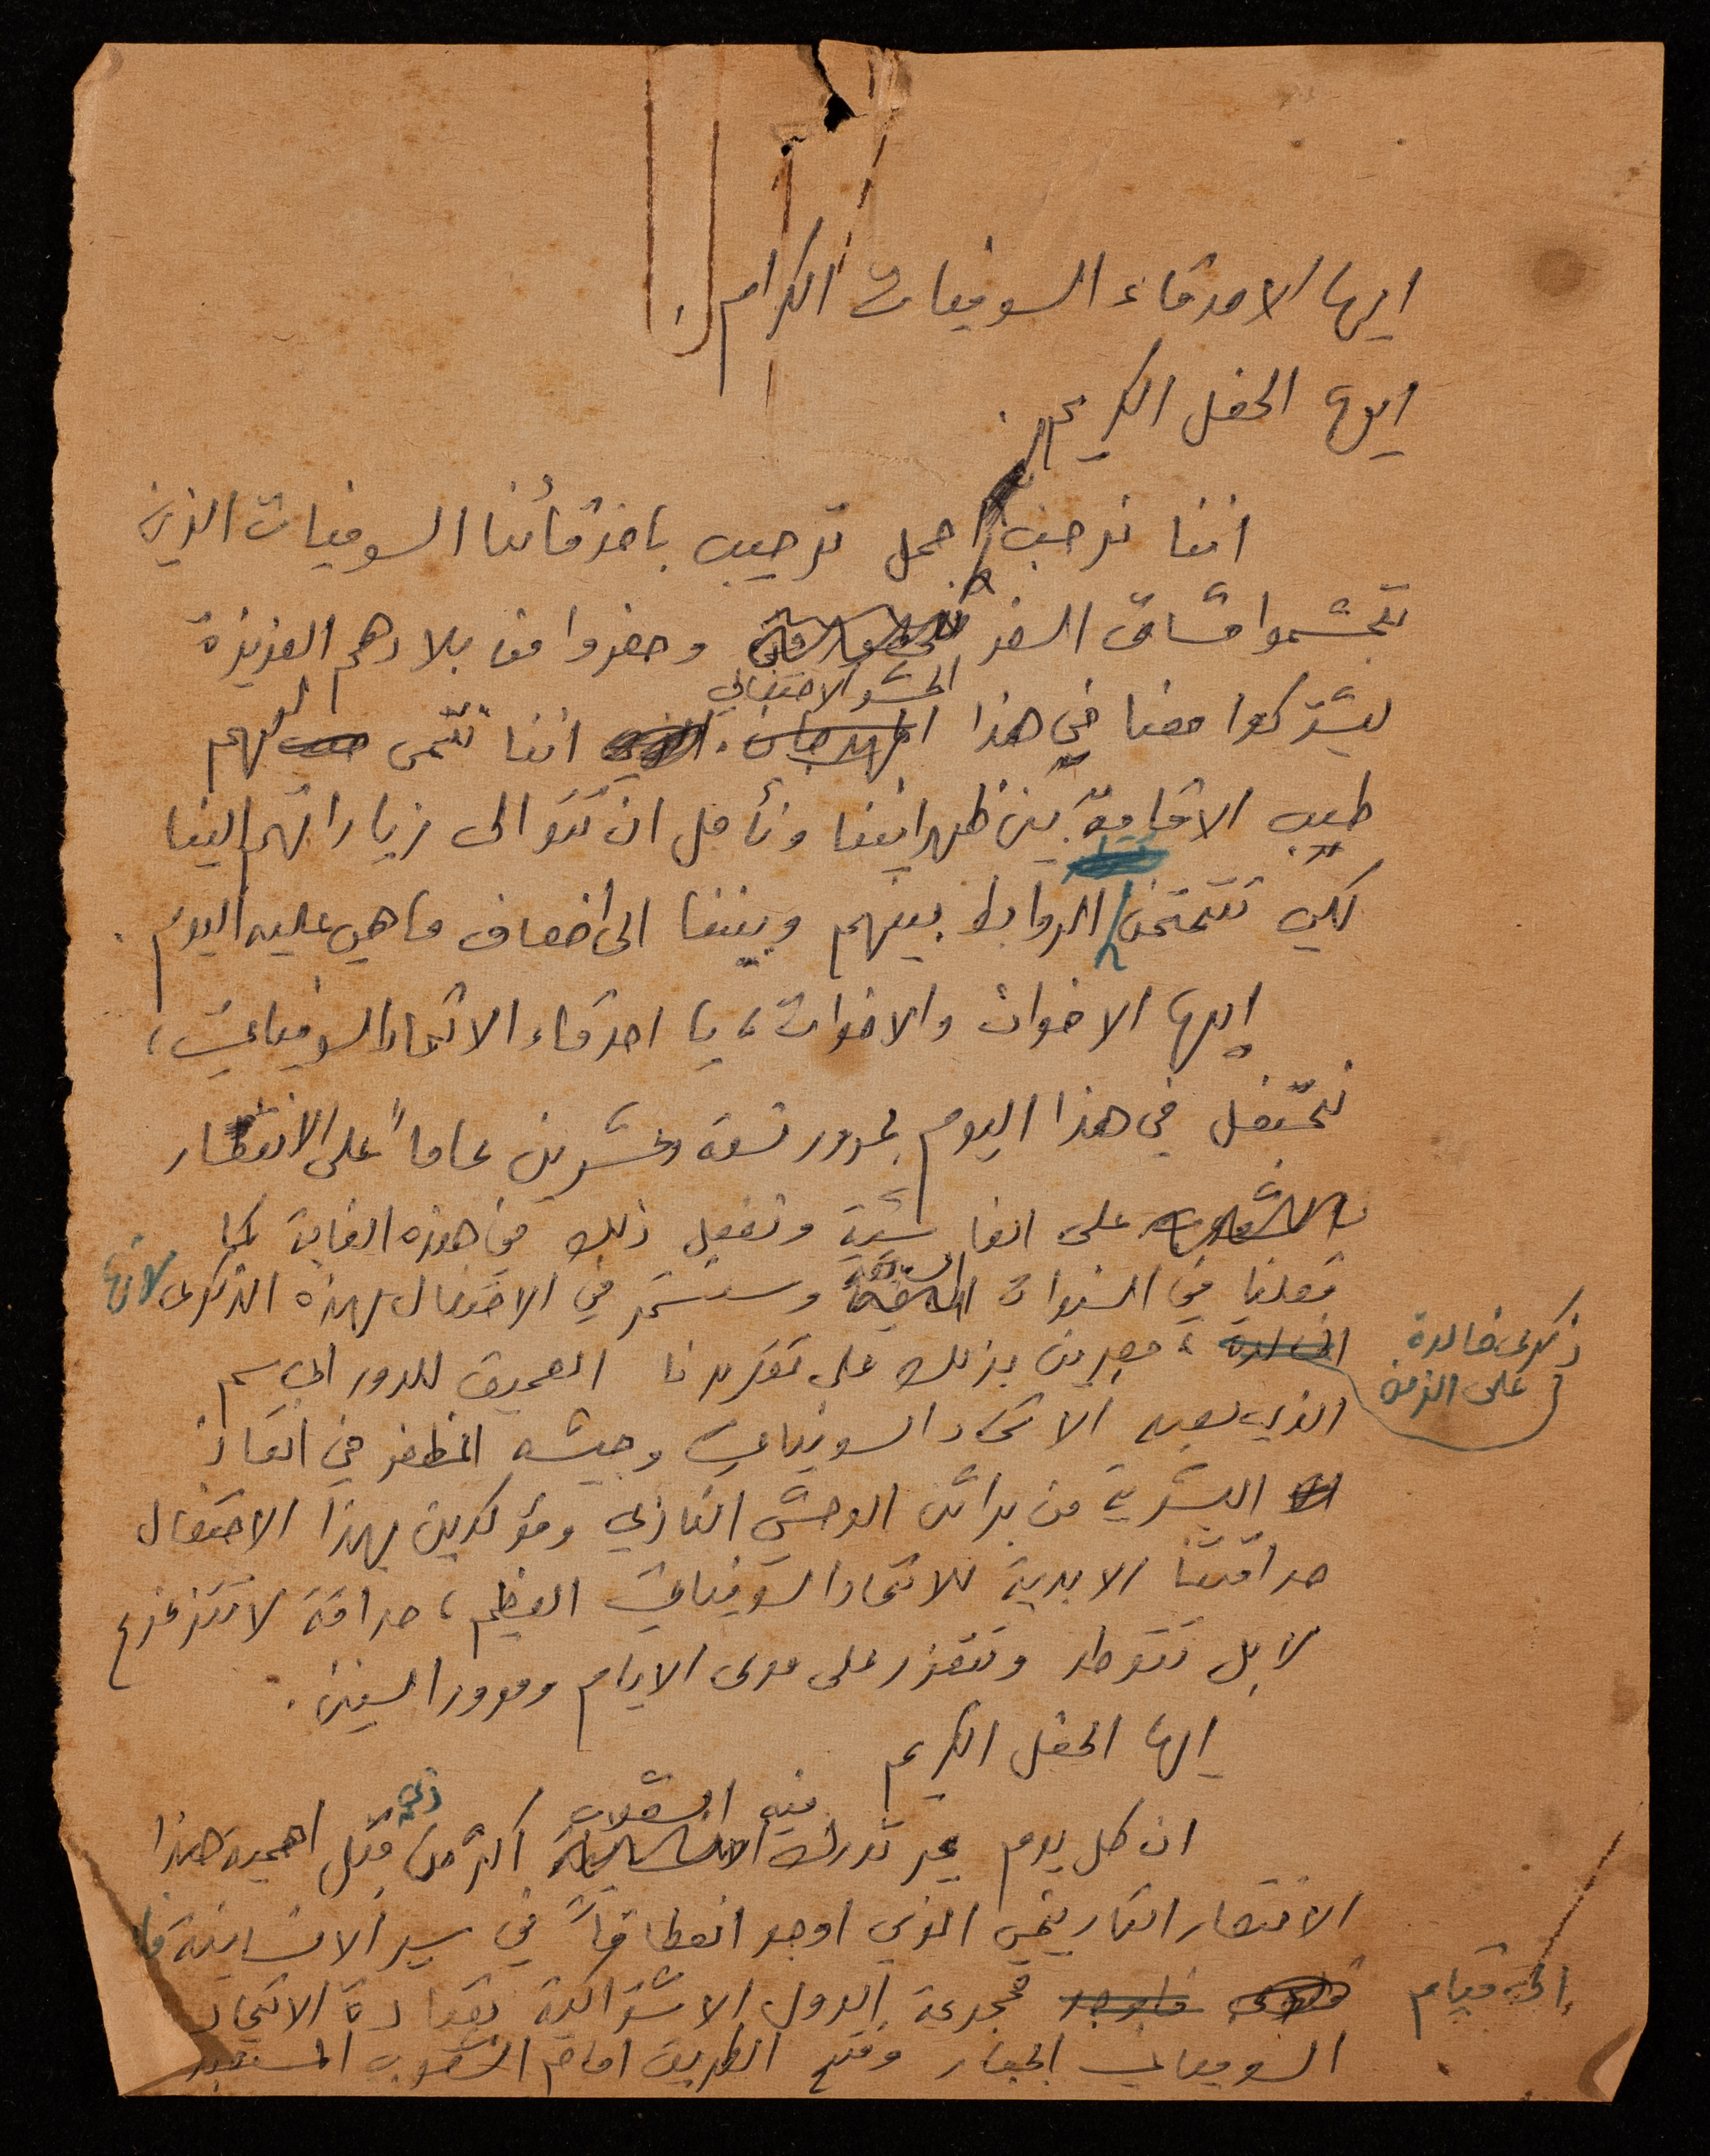 ايها الاصدقاء السوفيات الكرام .
ايها الحفل الكريم .
اننا نرحب اجمل ترحيب باصدقائنا السوفيات الذين
تجشموا مشاق السفر وحضروا من بلادهم العزيزة
الحشد الاحتفالي
ليشتركوا معنا في هذا المهرجان . اننا نتمنى لهم
طيب الاقامة بين ظهرانينا ونأمل ان تتوالى زياراتهم الينا
لكي تتمتن الروابط بينهم وبيننا الى اضعاف ما هي عليه اليوم .
ايها الاخوان والاخوات ، يا اصدقاء الاتحاد السوفياتي ،
نحتفل في هذا اليوم بمرور تسعة وعشرين عاماً على الانتصار
على الفاشية ونفعل ذلك في هذه الغاية كما
السابقة
فعلنا في السنوات وسنستمر في الاحتفال بهذه الذكرى لانها
ذكرى خالدة
على الزمن
الخالدة ، معبرين بذلك على تقديرنا العميق للدور الحاسم
الذي لعبه الاتحاد السوفياتي وجيشه المظفر في انقاذ
البشرية من براثن الوحش النازي ومؤكدين بهذا الاحتفال
صداقتنا الابدية للاتحاد السوفياتي العظيم ، صداقة لا تتزعزع
لا بل تتوطد وتتعزز على مدى الايام ومرور السنين .
ايها الحفل الكريم
فيه الشعوب
ان كل يوم يمر تدرك الانسانية اكثر من قبل اهمية هذا
الانتصار التاريخي الذي اوجد انعطافاً في سير الانسانية
إلى قيام
فاوجد مجموعة الدول الاشتراكية بقيادة الاتحاد
السوفياتي الجبار وفتح الطريق امام الشعوب